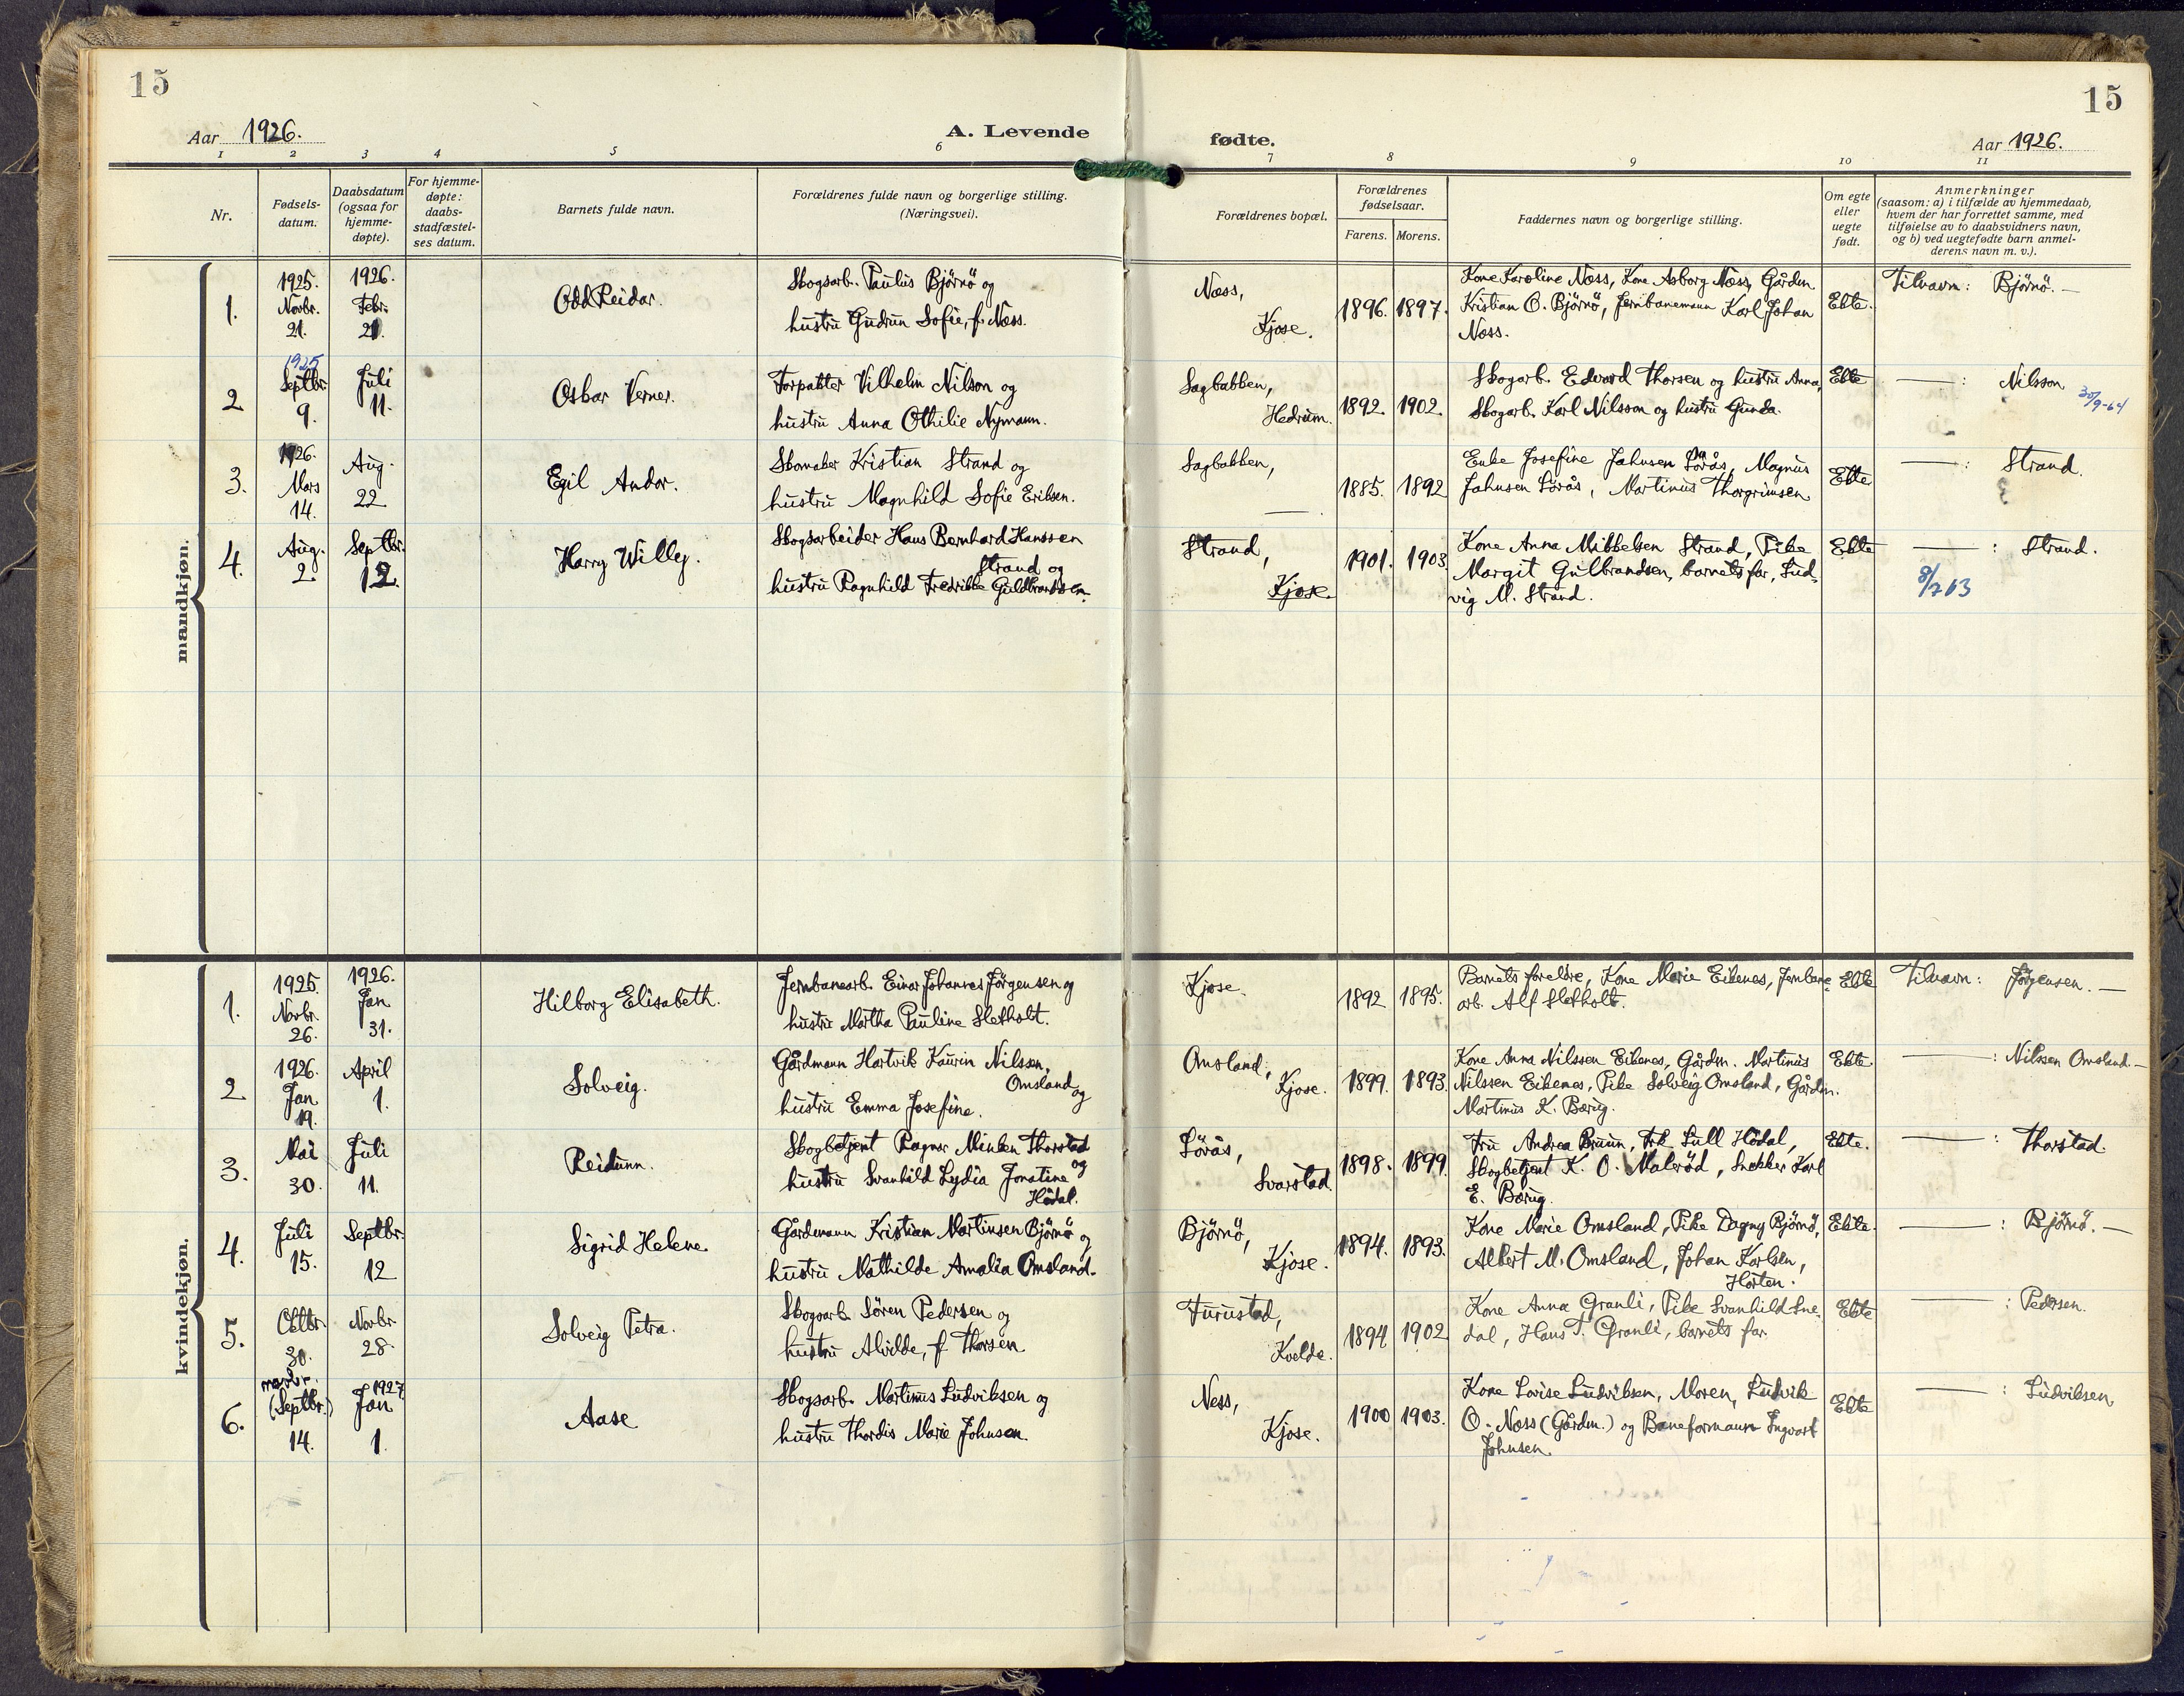 15
Aar 1926.
A. Levende
1 2 3 4 5 6
Nr.
Fødsels-
datum.
Daabsdatum
(ogsaa for
hjemme-
døpte).
For hjemme-
døpte:
daabs-
stadfæstel-
ses datum.
Barnets fulde navn.
Forældrenes fulde navn og borgerlige stilling.
(Næringsvei).
15
fødte.
Aar 1926.
7 8 9 10 11
Forældrenes bopæl.
Forældrenes
fødselsaar.
Farens. Morens.
Faddernes navn og borgerlige stilling.
Om egte
eller
uegte
født.
Anmerkninger
(saasom: a) i tilfælde av hjemmedaab,
hvem der har forrettet samme, med
tilføielse av to daabsvidners navn,
og b) ved uegtefødte barn anmel-
derens navn m. v.).
mandkjøn.
1.
1925.
Novbr.
21.
1926.
Febr.
21.
Odd Reidar.
Skogsarb. Paulus Bjørnö og
hustru Gudrun Sofie, f. Næss.
Næss,
Kjose.
1896. 1897.
Kone Karoline Næss, Kone Asborg Næss, Gårdm.
Kristian O. Bjørnö, Jernbanemann Karl Johan
Næss.
Ekte.
Tilnavn: Bjørnö. —
2
1925
Septbr.
9.
Juli
11.
Oskar Verner.
Forpakter Vilhelm Nilson og
hustru Anna Othilie Nymann.
Sagbakken,
Hedrum.
1892. 1902.
Skogarb. Edvard Thorsen og hustru Anna,
Skogarb. Karl Nilsson og hustru Gunda.
Ekte
— : Nilsson
30/9-64
3.
1926.
Mars
14.
Aug.
22
Egil Andor.
Skomaker Kristian Strand og
hustru Magnhild Sofie Eriksen.
Sagbakken,
—
1885. 1892
Enke Josefine Jahnsen Sörås, Magnus
Jahnsen Sörås, Martinus Thorgrimsen
Ekte
— : Strand.
4.
Aug.
2.
Septbr.
12.
Harry Willy.
Skogsarbeider Hans Bernhard Hanssen
Strand og
hustru Ragnhild Fredrikke Guldbrandsen.
Strand,
Kjose.
1901. 1903
Kone Anna Mikkelsen Strand, Pike
Margit Gulbrandsen, barnets far, Lud-
vig M. Strand.
Ekte
— : Strand.
8/7 63
kvindekjøn.
1.
1925.
Novbr.
26.
1926.
Jan.
31.
Hilborg Elisabeth.
Jernbanearb. Einar Johannes Jörgensen og
hustru Martha Pauline Sletholt.
Kjose.
1892 1895.
Barnets foreldre, Kone Marie Eikenes, Jernbane-
arb. Alf Sletholt.
Ekte
Tilnavn: Jörgensen. —
2
1926.
Jan.
19.
April
1.
Solveig.
Gårdmann Hartvik Kaurin Nilsen,
Omsland og
hustru Emma Josefine.
Omsland,
Kjose.
1899. 1893.
Kone Anna Nilssen Eikenes, Gårdm. Martinus
Nilssen Eikenes, Pike Solveig Omsland, Gårdm.
Martinus K. Bærug.
Ekte
— : Nilssen Omsland. —
3.
Mai
30.
Juli
11.
Reidunn.
Skogbetjent Ragnar Minken Thorstad
og
hustru Svanhild Lydia Jonatine
Hödal.
Sörås,
Svarstad.
1898. 1899.
Fru Andrea Bruun, Frk. Lull Hödal,
Skogbetjent K. O. Maleröd, Snekker Karl
E. Bærug.
Ekte.
— : Thorstad.
4.
Juli
15.
Septbr.
12
Sigrid Helene.
Gårdmann Kristian Martinsen Bjørnö og
hustru Mathilde Amalia Omsland.
Bjørnö,
Kjose.
1894. 1893.
Kone Marie Omsland, Pike Dagny Bjørnö,
Albert M. Omsland, Johan Karlsen,
Horten.
Ekte.
— : Bjørnö. —
5.
Oktbr.
30.
Novbr.
28.
Solveig Petra.
Skogarb. Sören Pedersen og
hustru Alvilde, f. Thorsen
Furustad,
Kvelde.
1894 1902
Kone Anna Granli, Pike Svanhild Sne-
dal, Hans T. Granli, barnets far.
Ekte
— : Pedersen.
6.
novbr.
(Septbr.)
14.
1927
Jan
1.
Aase
Skogsarb. Martinus Ludviksen og
hustru Thordis Marie Johnsen.
Ness,
Kjose.
1900 1903.
Kone Lovise Ludviksen, Moren, Ludvik
O. Næss (Gårdm.) og Baneformann Ingvart
Johnsen.
Ekte
— : Ludviksen